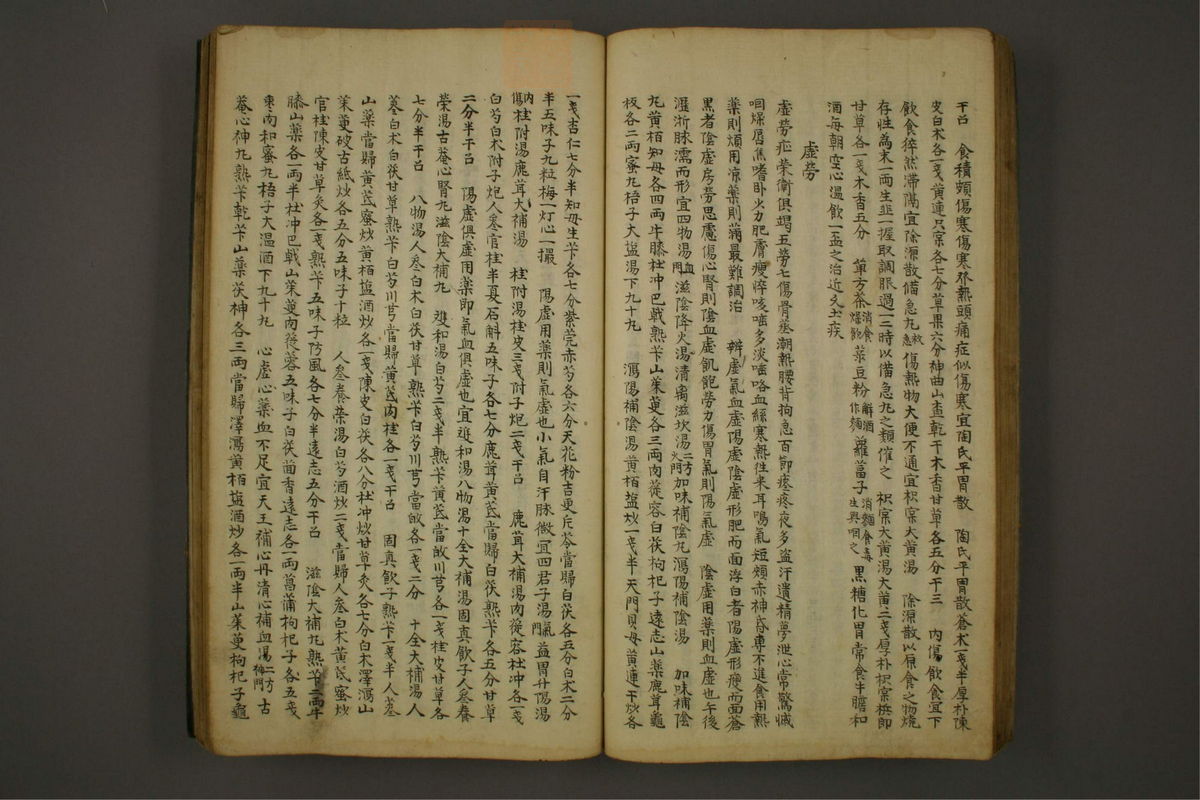 干呂 食積類傷寒傷寒外熱頭痛症似傷寒宜陶氏平胃散 陶氏平胃散蒼朮一戔半厚朴陳
皮白朮各一戔黃連只宲各七分草果六分神曲山查乾干木香甘草各五分干三 內傷飮食宜下
飮食猝然滯隔宜除源散備急丸 傷熱物大便不通宜枳宲大黃湯 除源散以原食之物燒
存性爲末一兩生韭一握取調服過一二時以備急丸之類催之 枳宲大黃湯大黃二戔厚朴枳宲梹郞
甘草各一戔木香五分 單方茶消食 菉豆粉解酒 蘿葍子消麵食毒 黑糖化胃常食牛膽和
酒每朝空心溫飮一盃之治近久土疾
虛勞
虛勞症榮衛俱竭五勞七傷骨蒸潮熱腰背拘急百節疼疼夜多盜汗遺精夢泄心常驚悸
咽燥唇焦嗜卧少力肥膚瘦悴咳嗑多淡嗑咯血絲寒熱往來耳鳴氣短頰赤神昏專不進食用熱
藥則煩用凉藥則滿最難調治 辨虛氣血虛陽虛陰虛形肥而面浮白者陽虛形瘦而面蒼
黑者陰虛房勞思慮傷心腎則陰血虛飢飽勞力傷胃氣則陽氣虛 陰虛用藥則血虛也午後
灑淅脉濡而形宜四物湯血門滋陰降火湯淸离滋坎湯二方火門加味補陰丸瀉陽補陰湯 加味補陰
丸黃栢知母各四兩牛膝杜冲巴戟熟芐山茱萸各三兩肉蓯容白茯枸杞子遠志山藥鹿茸龜
板各二兩蜜丸梧子大塩湯下九十丸 瀉陽補陰湯黃栢塩炒一戔半天門貝母黃連干炒各
一戔杏仁七分半知母生芐各七分紫莞赤芍各六分天花粉吉更片芩當歸白茯各五分白朮二分
半五味子九粒梅一灯心一撮 陽虛用藥則氣虛也小氣自汗脉微宜四君子湯氣門益胃升陽湯
內傷桂附湯鹿茸大補湯 桂附湯桂皮三戔附子炮二戔干呂 鹿茸大補湯肉蓯容杜冲各一戔
白芍白朮附子炮人參官桂半夏石斛五味子各七分鹿茸黃芪當歸白茯熟芐各五分甘草
二分半干呂 陽虛俱虛用藥即氣血俱虛也宜雙和湯八物湯十全大補湯固眞飮子人參養
榮湯古菴心腎丸滋陰大補丸 雙和湯白芍二戔半熟芐黃芪當歸川芎各一戔桂皮甘草各
七分半干呂 八物湯人參白朮白茯甘草熟芐白芍川芎當歸各一戔二分 十全大補湯人
參白朮白茯甘草熟芐白芍川芎當歸黃芪肉桂各一戔干呂 固眞飮子熟芐一戔半人參
山藥當歸黃芪蜜炒黃栢塩酒炒各一戔陳皮白茯各八分杜冲炒甘草灸各七分白朮澤瀉山
茱萸破古紙炒各五分五味子十粒 人參養榮湯白芍酒炒二戔當歸人參白朮黃芪蜜炒
官桂陳皮甘草灸各一戔熟芐五味子防風各七分半遠志五分干呂 滋陰大補丸熟芐二兩牛
膝山藥各一兩半杜冲巴戟山茱萸肉蓯蓉五味子白茯茴香遠志各一兩菖蒲枸杞子各五戔
棗肉和蜜丸梧子大溫酒下九十丸 心虛心藥血不足宜天王補心丹淸心補血湯二方神門 古
菴心神丸熟芐乾芐山藥茯神各三兩當歸澤瀉黃栢塩酒炒各一兩半山茱萸枸杞子龜